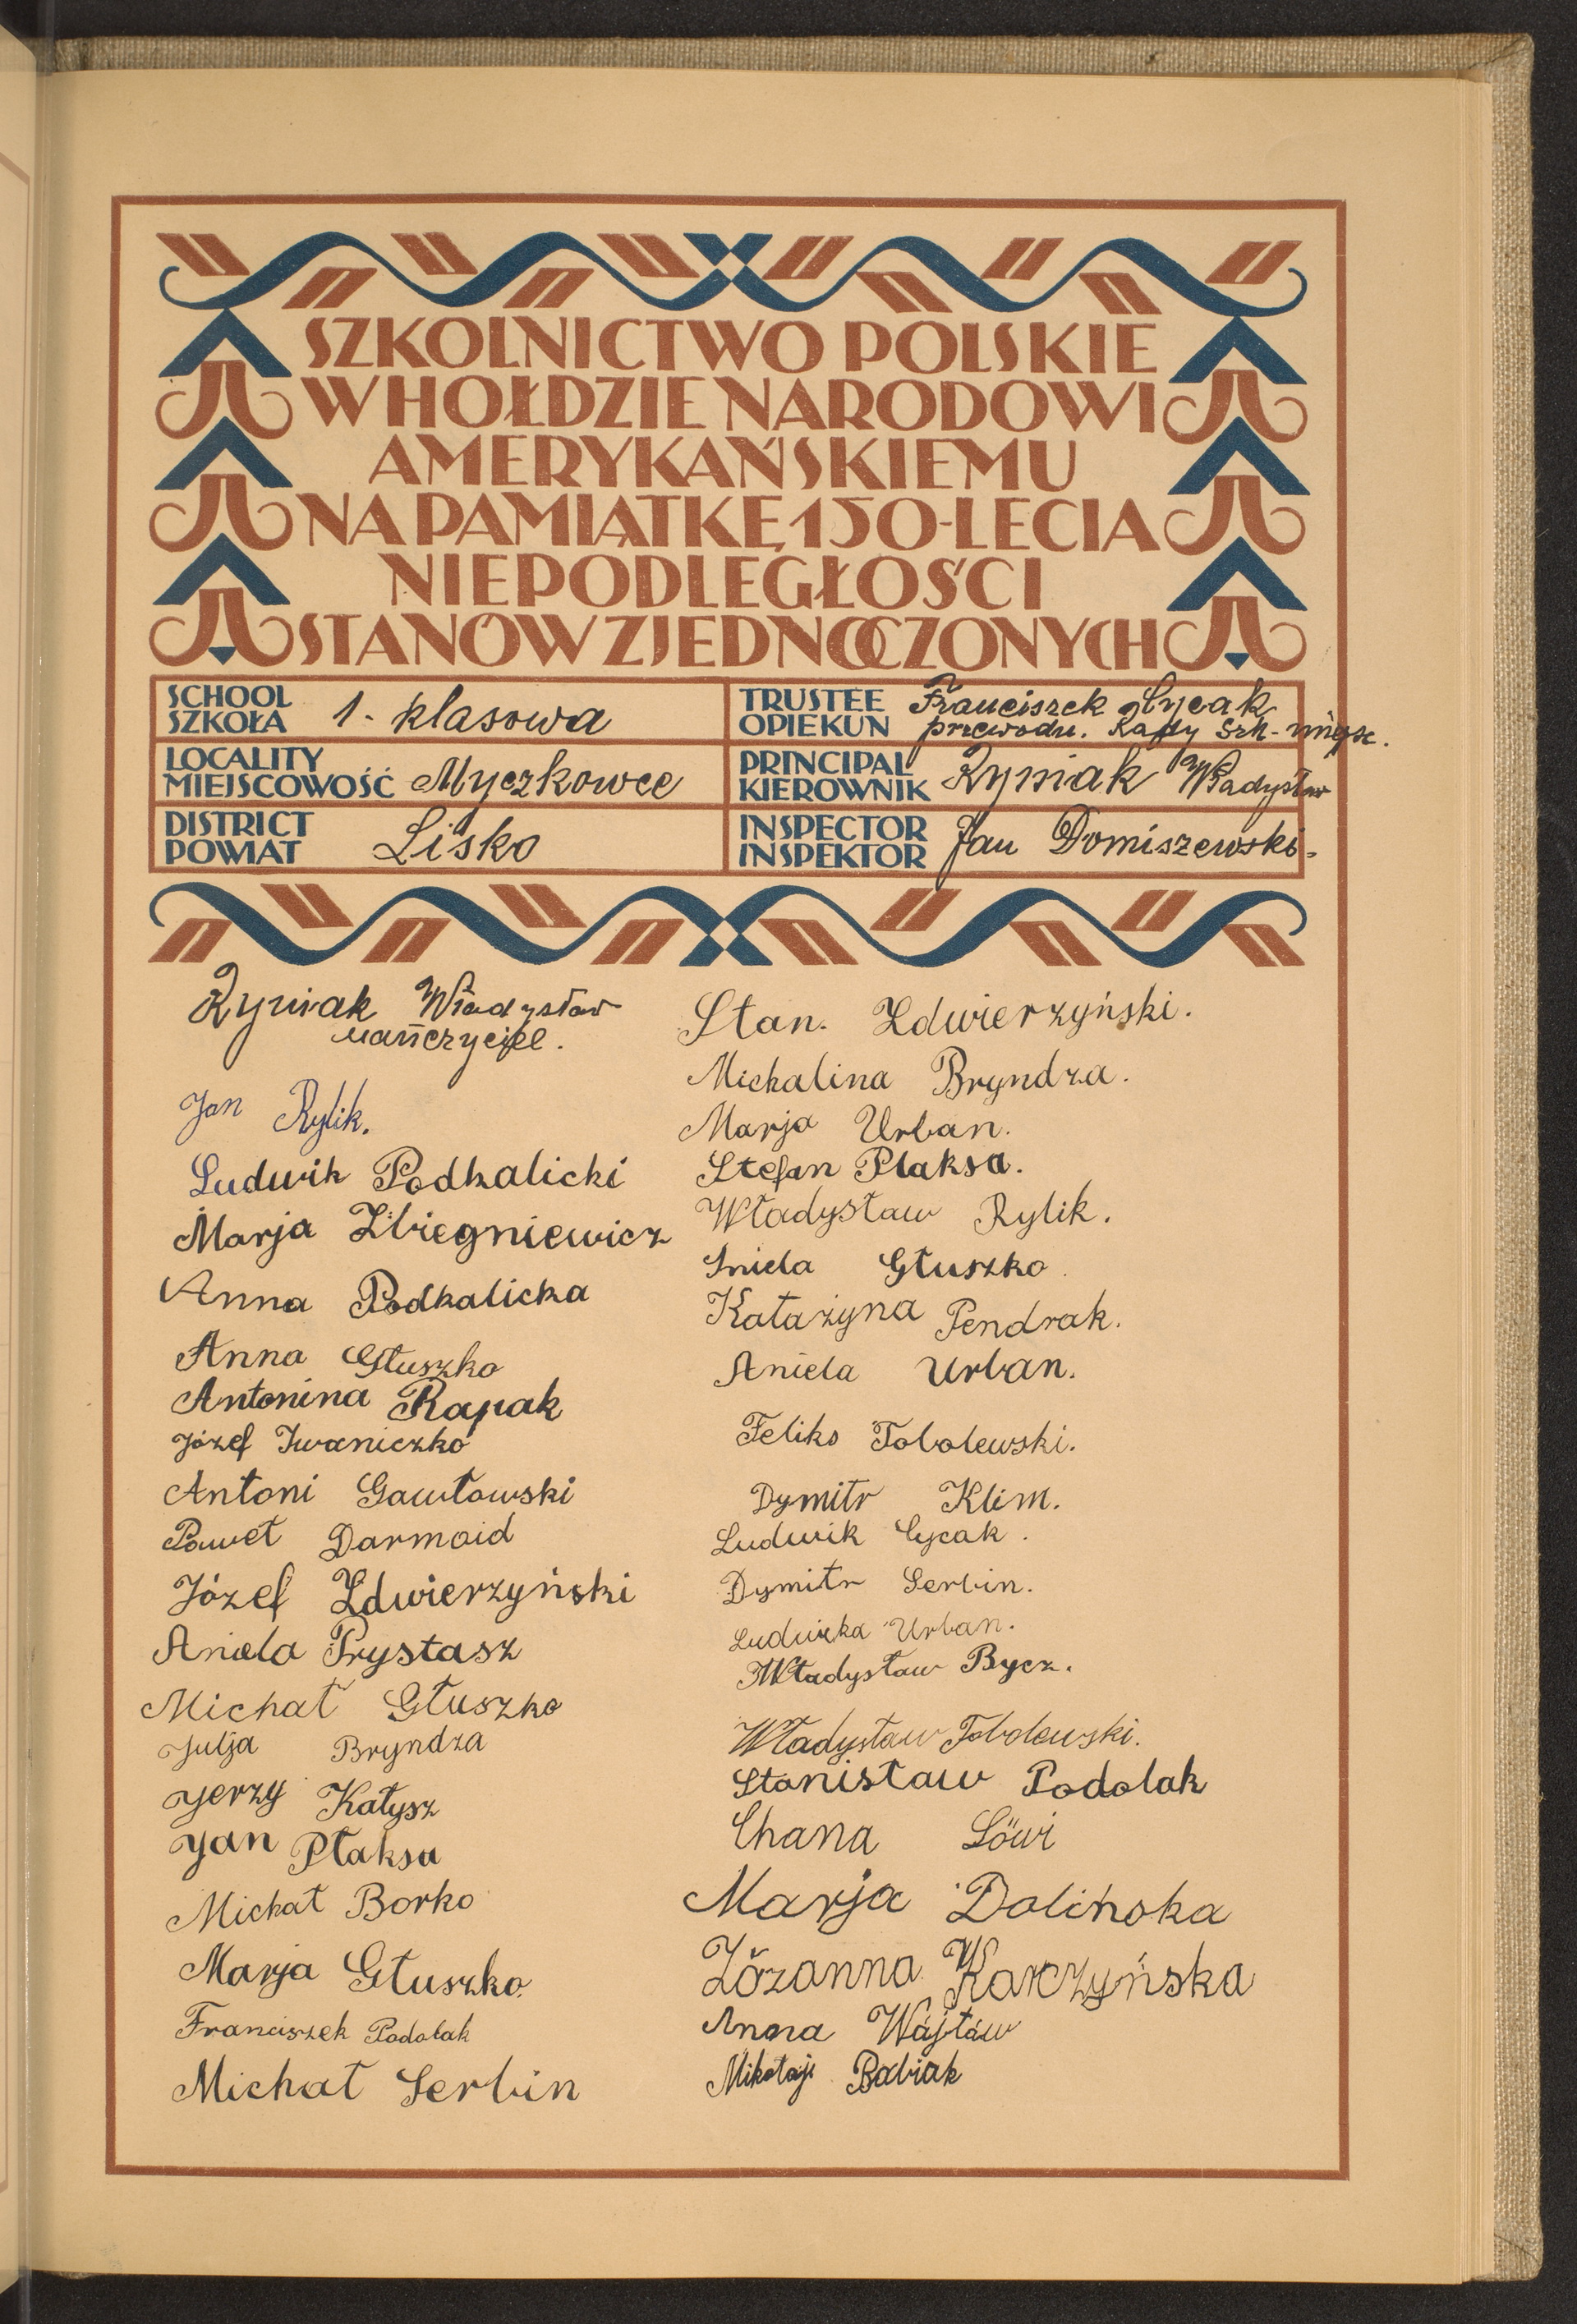 SZKOLNICTWO POLSKIE
W HOŁDZIE NARODOWI
AMERYKAŃSKIEMU
NA PAMIĄTKĘ 150-LECIA
NIEPODLEGŁOŚCI
STANÓW ZJEDNOCZONYCH
SCHOOL
SZKOŁA
1. klasowa
LOCALITY
MIEJSCOWOŚĆ
Myczkowce
DISTRICT
POWIAT
Lisko
TRUSTEE
OPIEKUN
Franciszek Cycak
przewodn. Rady Szk. miejsc.
PRINCIPAL
KIEROWNIK
Rymak Władysław
INSPECTOR
INSPEKTOR
Jan Domiszewski
Władysław
nauczyciel.
Jan Rylik.
Ludwik Podkalicki
Marja Zbiegniewicz
Anna Podkalicka
Anna Głuszko
Antonina Rapak
Józef Iwaniczko
Antoni Gawłowski
Paweł Darmoid
Józef Zdwierzyński
Aniela Prystasz
Michał Głuszko
Julja Bryndza
Jerzy Kałysz
Jan Płaksa
Michał Borko
Marja Głuszko
Franciszek Podolak
Michał Serbin
Stan. Zdwierzyński.
Michalina Bryndza.
Marja Urban.
Stefan Płaksa.
Władysław Rylik.
Aniela Głuszko.
Katażyna Pendrak.
Aniela Urban.
Feliks Tobolewski.
Dymitr Klim.
Ludwik Cycak.
Dymitr Serbin.
Ludwika Urban.
Władysław Bycz.
Władysław Tobolewski.
Stanisław Podolak
Chana Löwi
Marja Dolińska
Zózanna Karczyńska
Anna Wójtów
Mikołaj Babiak